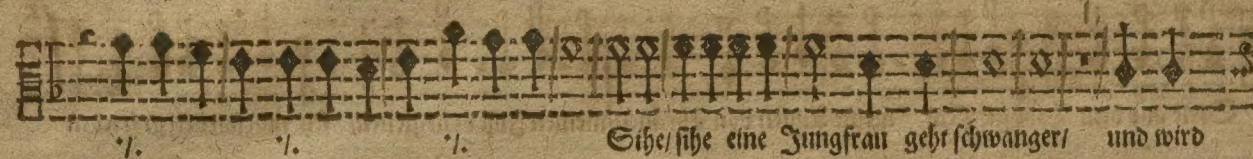 Sihe/ sihe eine Jungfrau geht schwanger/ und wird